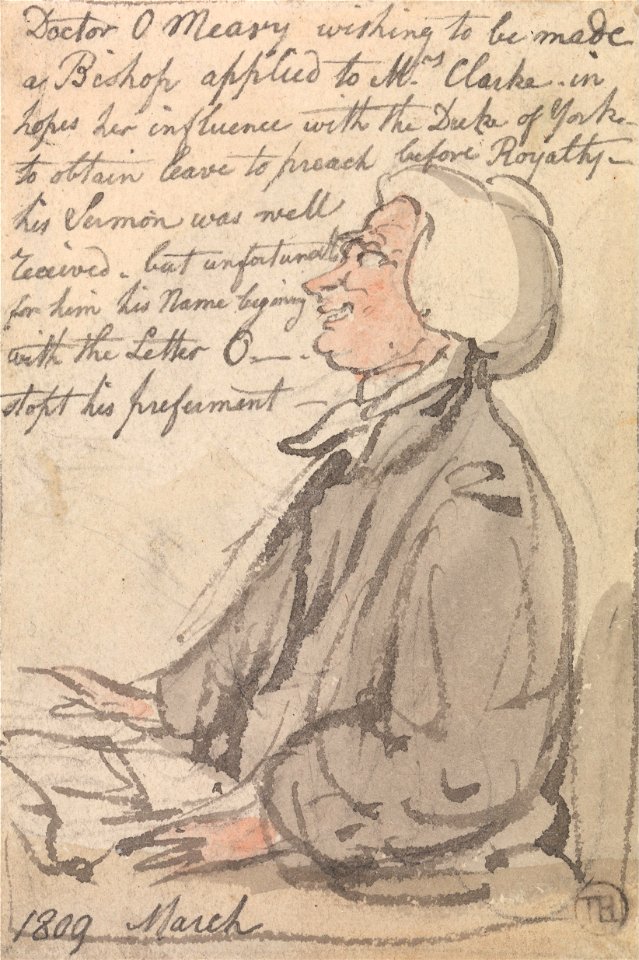 Doctor O Meary wishing to be made
a Bishop applied to Mrs Clarke - in
hopes her influence with the Duke of York -
to obtain leave to preach before Royalty -
his Sermon was well
received - but unfortunat
for him his Name begining
with the Letter O — .
stopt his preferment —
1809 March
TH